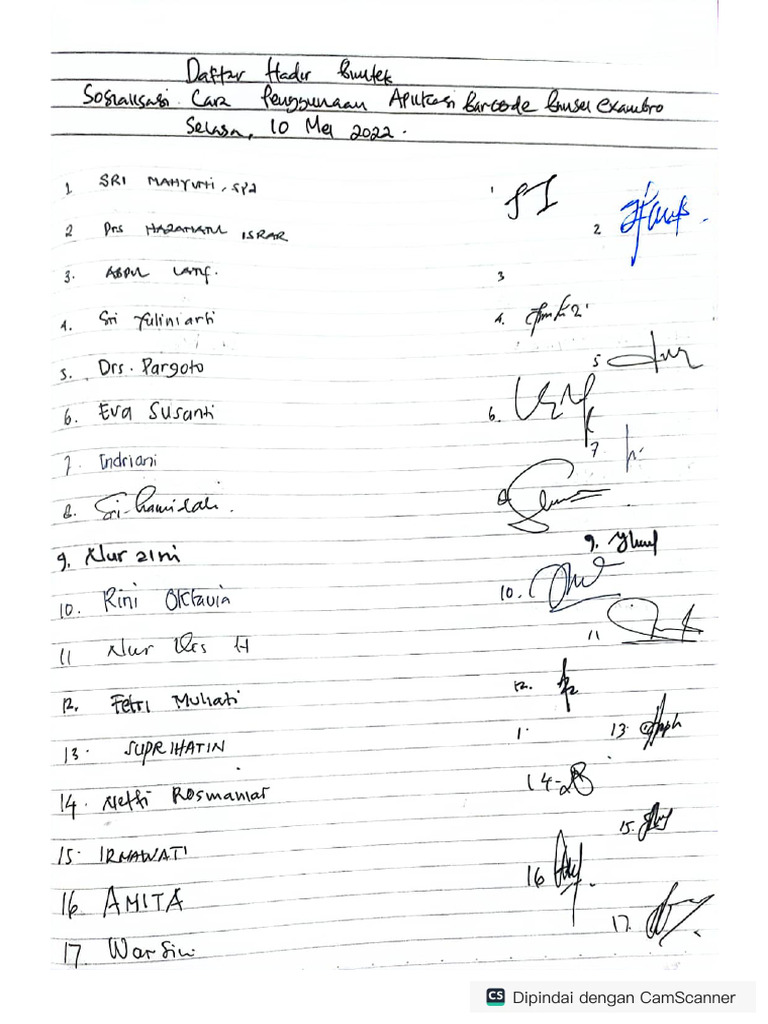 Daftar Hadir Bimtek
Sosialisasi Cara Penggunaan Aplikasi Barcode Exambro
Selasa, 10 Mei 2022.
1 SRI MAHYUNI, SPd 1
2 Drs HAZAMATUL ISRAR 2
3. ABDUL LATIF. 3
4. Sri Yuliniarti 4.
5. Drs. Pargoto 5
6. Eva Susanti 6.
7. Indriani 7
8. Sri Hamidah. 8
9. Nur aini 9.
10. Rini Oktavia 10.
11 Nur H 11
12. Fetri Muliati 12.
13. SUPRIHATIN 1. 13.
14. Netti Rosmaniar 14.
15. IRMAWATI 15.
16 AMITA 16
17. Warsini 17.
CS Dipindai dengan CamScanner